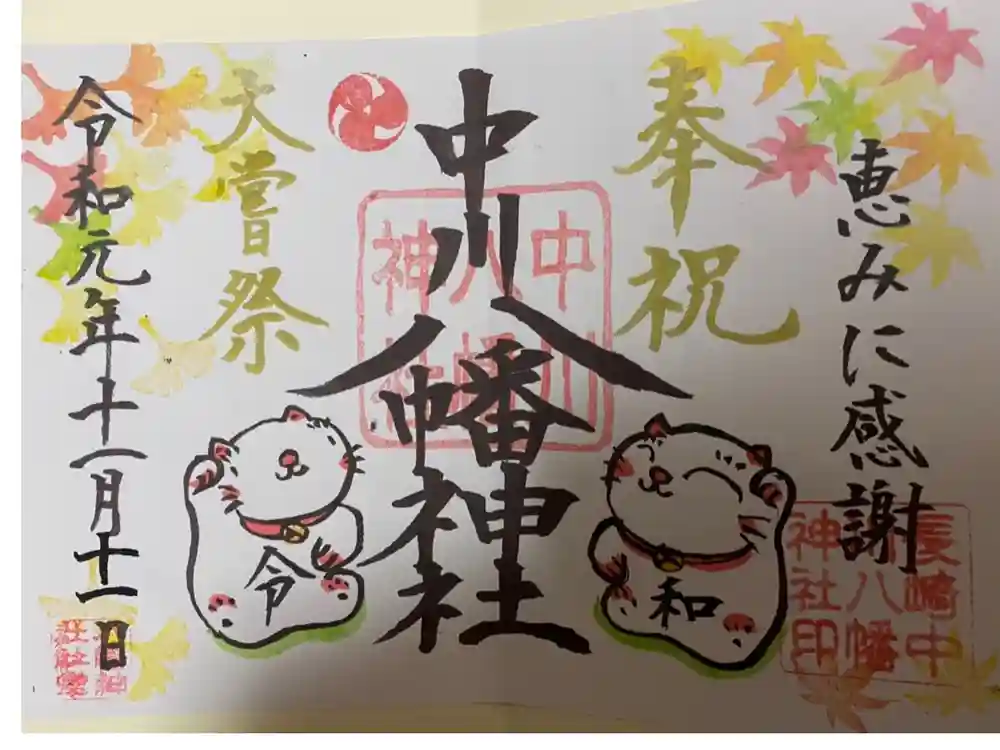 恵みに感謝
奉祝
中川八幡神社
大嘗祭
令和元年十一月十一日
中川
八幡
神社
長崎中
八幡
神社印
和
令